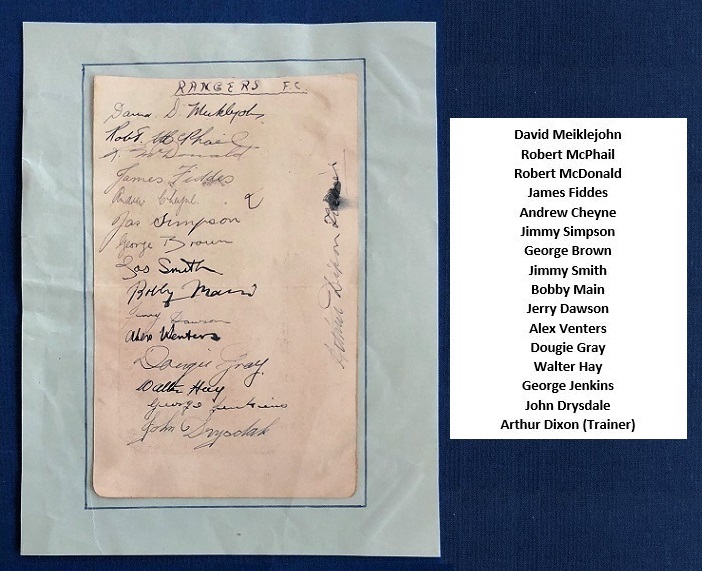 RANGERS F.C.
David D. Meiklejohn
Robt. McPhail
R. McDonald
James Fiddes
Andrew Cheyne
Jas Simpson
George Brown
Jas Smith
Bobby Main
Jerry Dawson
Alex Venters
Dougie Gray
Walter Hay
George Jenkins
John Drysdale
Arthur Dixon Trainer
David Meiklejohn
Robert McPhail
Robert McDonald
James Fiddes
Andrew Cheyne
Jimmy Simpson
George Brown
Jimmy Smith
Bobby Main
Jerry Dawson
Alex Venters
Dougie Gray
Walter Hay
George Jenkins
John Drysdale
Arthur Dixon (Trainer)